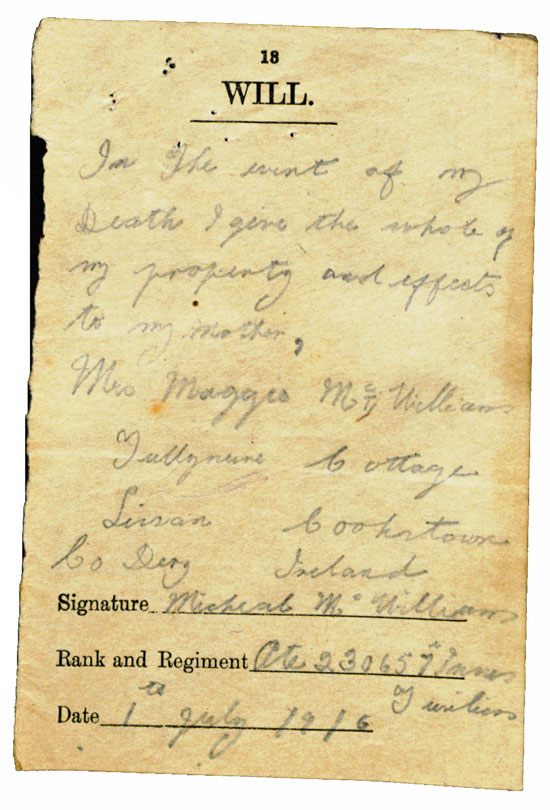 18
WILL.
In the event of my
Death I give the whole of
my property and effects
to my Mother,
Mrs Maggie McWilliams
Cottage
Lissan Cookstown
Co Derry Ireland
Signature Micheal McWilliams
Rank and Regiment Pte 23065
Date 1st July 1916